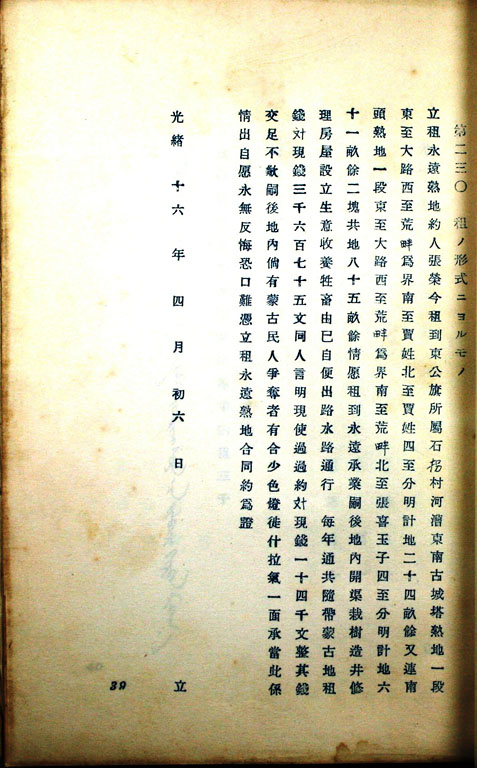 第二三〇 租ノ形式ニヨルモノ
立租永遠熟地約人張榮今租到東公旗所屬石拐村河漕東南古城塔熟地一段
東至大路西至荒畔爲界南至賈姓北至賈姓四至分明計地二十四畝餘又連南
頭熟地一段東至大路西至荒畔爲界南至荒畔北至張喜玉子四至分明計地六
十一畝餘二塊共地八十五畝餘情愿租到永遠承業嗣後地內開渠栽樹造井修
理房屋設立生意收養牲畜由已自便出路水路通行 每年通共隨帶蒙古地租
錢対現錢三千六百七十五文同人言明現使過過約対現錢一十四千文整其錢
交足不欠嗣後地內倘有蒙古民人爭奪者有合少色燈徒什拉氣一面承當此係
情出自愿永無反悔恐口難憑立租永遠熟地合同約爲證
光緒 十六 年 四 月 初六 日 立
39